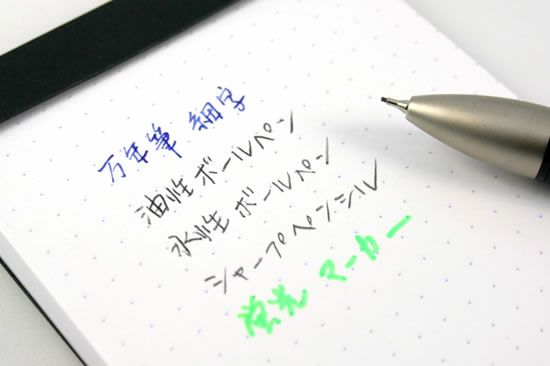 万年筆 細字
油性ボールペン
水性ボールペン
シャープペンシル
蛍光マーカー